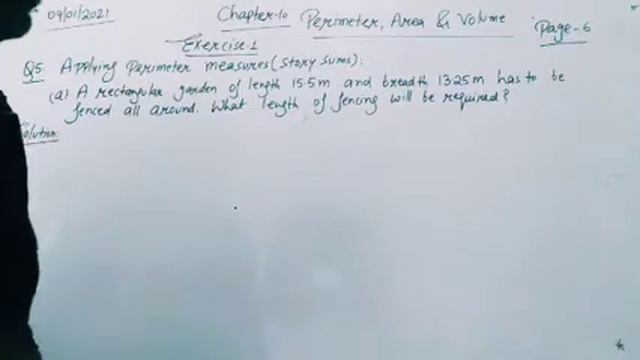 09/01/2021 Chapter-10 Perimeter, Area & Volume Page-6
Exercise-1
Q5. Applying Perimeter measures (Story sums):
(a) A rectangular garden of length 15.5m and breadth 13.25m has to be
fenced all around. What length of fencing will be required?
Solution: